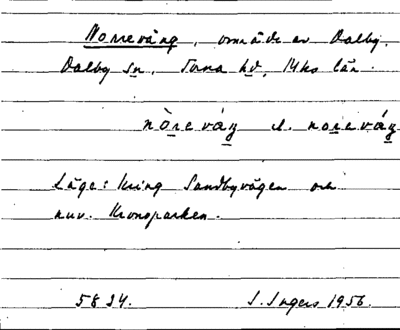 Norrevång, område av Dalby,
Dalby sn, Torna hd, Mhs län.
nòrevåŋ l. norevåŋ
Läge: kring Sandbyvägen och
nuv. Kronoparken.
5824. I. Ingers 1956.